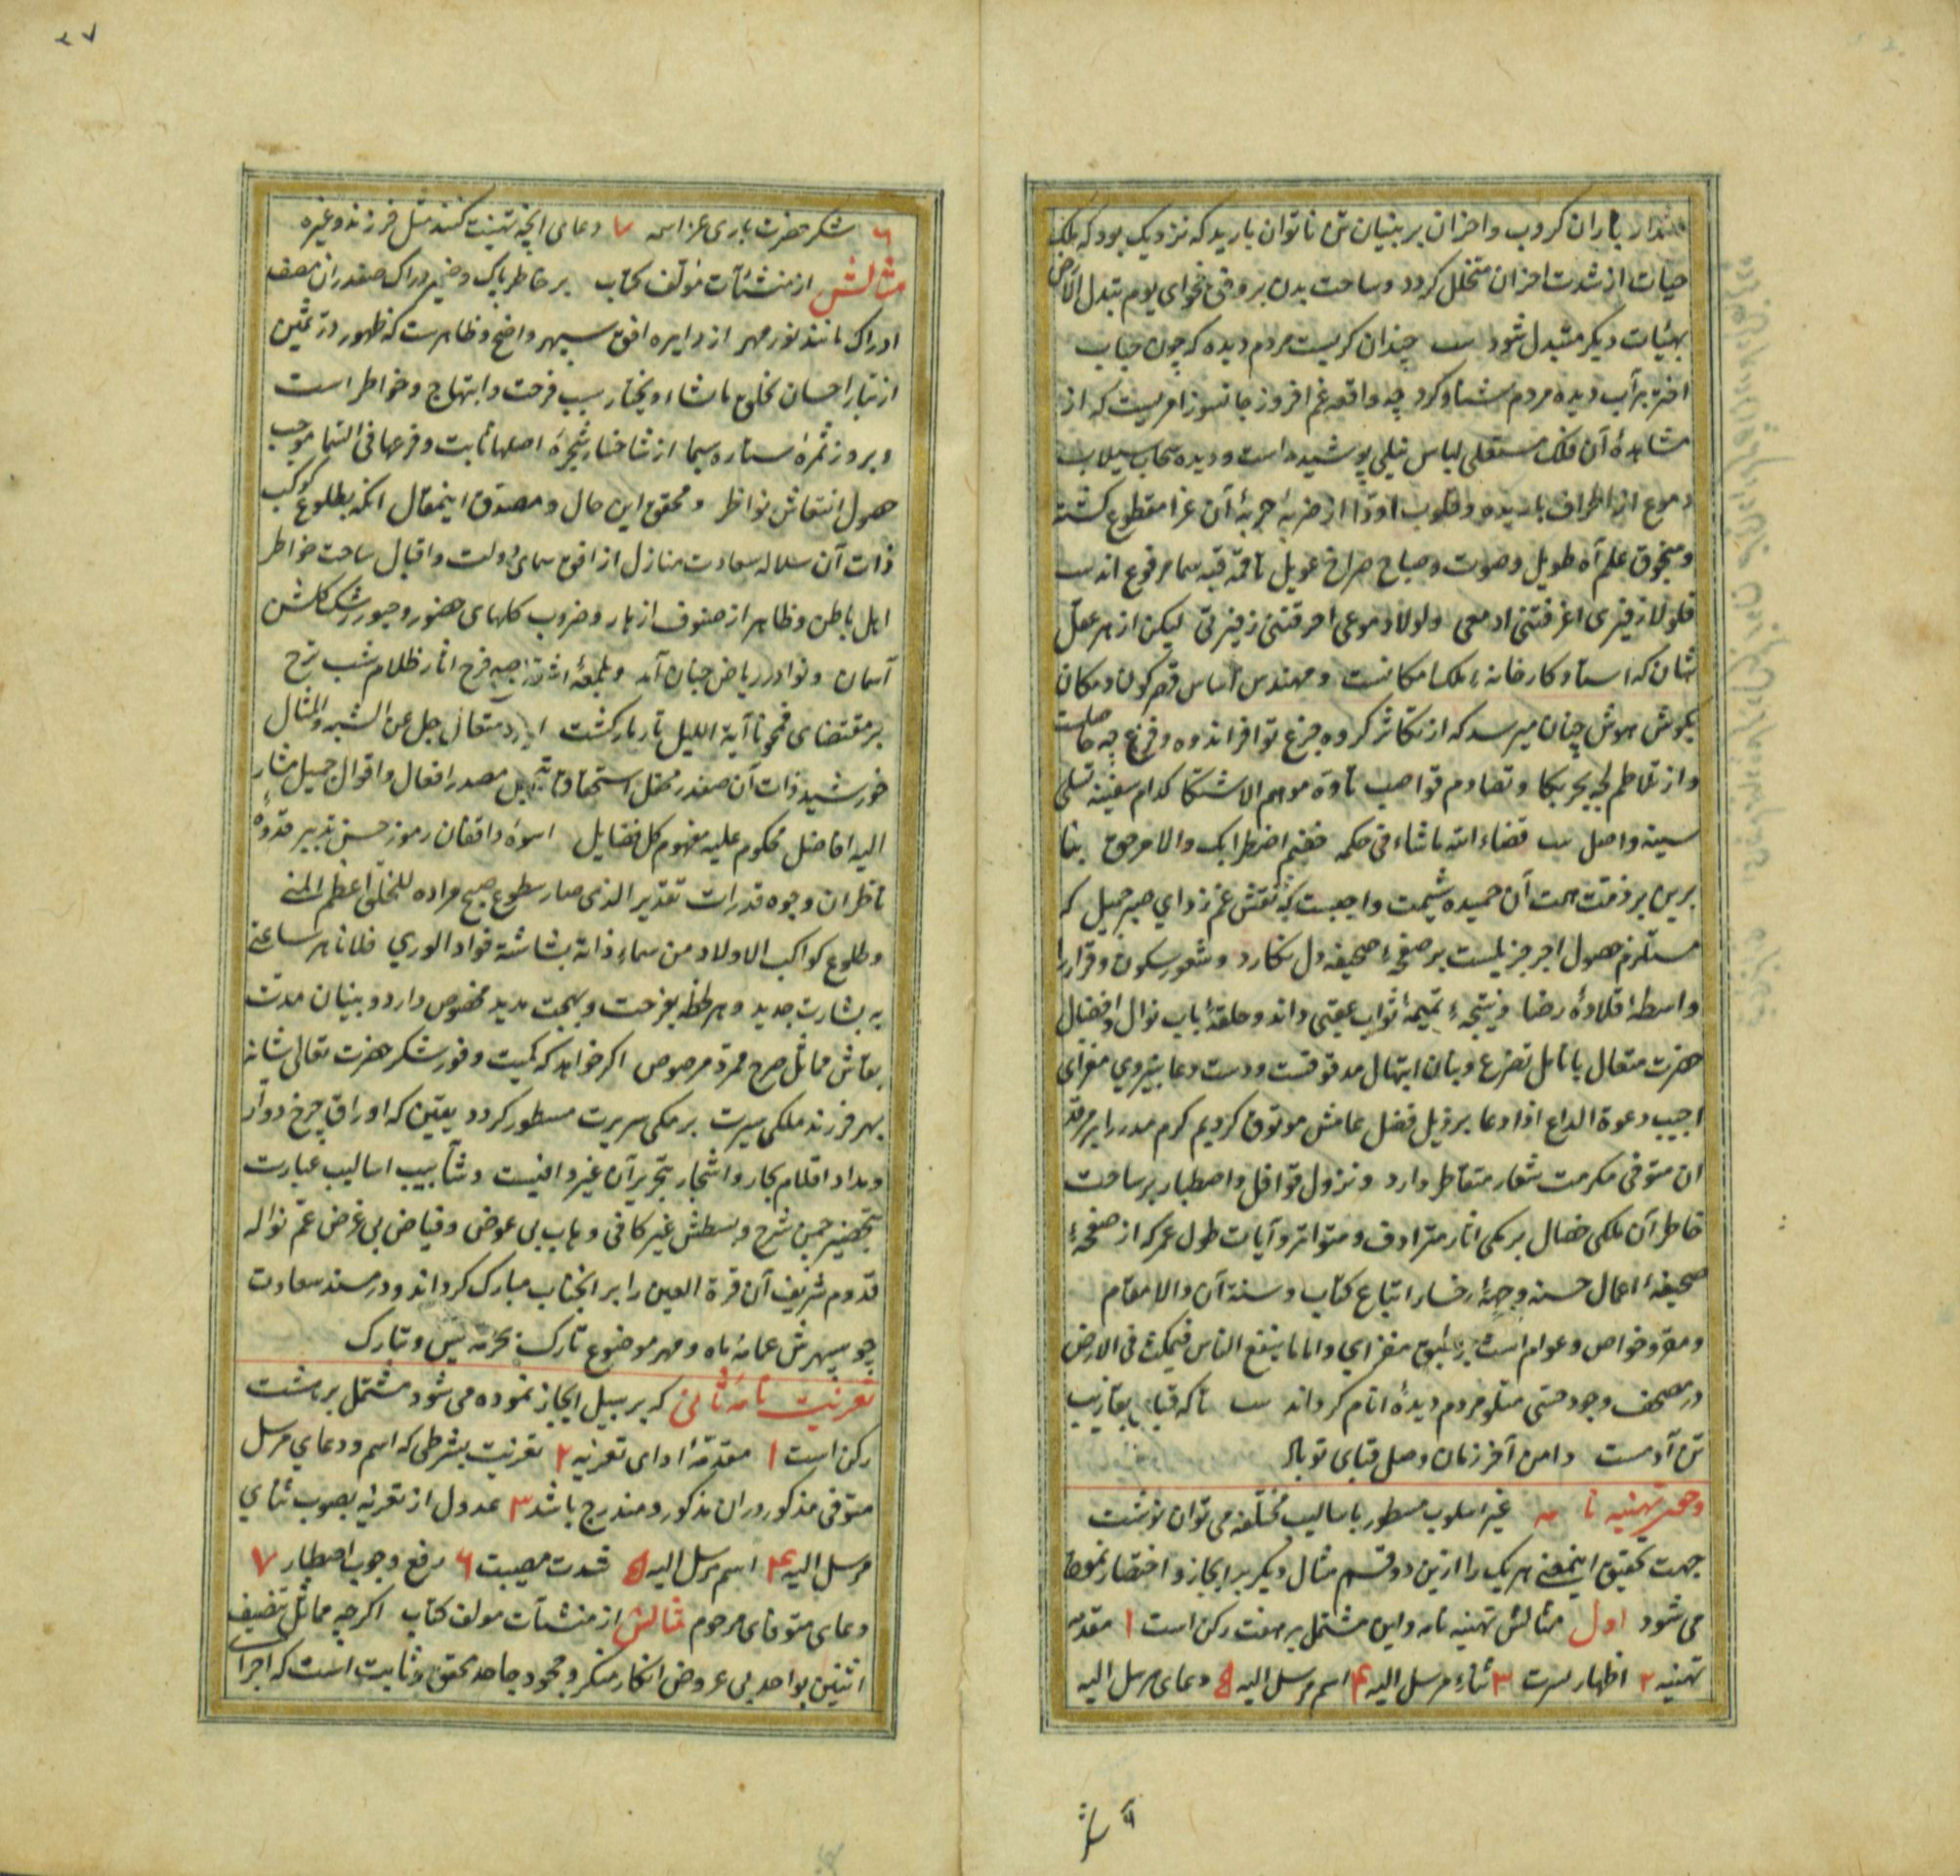 باران کروب و احزان بر بنیان تن ناتوان بارید که نزدیک بود که ملک
حیات از شدت احزان متخلل کردد و ساحت بدن بر وفق فحوای یوم تبدل الارض
بهیئات دیکر متبدل شود چندان کریست مردم دیده که چون حباب
برآب دیده مردم شناو کرد چه واقعه غم افروز جانسوز امریست که از
مشاهدهٔ آن فلک مستعلی لباس نیلی پوشیده است و دیده سحاب سیلاب
دموع از اطراف باریده و قلوب از ضربهٔ حربهٔ آن عزا مقطوع کشته
و منجوق علم آه طویل و صوت و صیاح صراخ عویل تا قمه قبه سما مرفوع اند
فلولا زفیری اغرقتنی ادمعی ولولا دموعی احرقتنی زفرتی لیکن از هر عقل
شان که استاد کارخانهٔ ملک امکانست و مهندس اساس قصر کون و مکان
بکوش هوش چنان میرسد که از تکاثر کروه جزع توافر اندوه و فزع چه حاصلست
و از تلاطم لجه بحر بکا و تصادم قواصب تأوه موهم الاشتکا کدام سفینه تسلی
سینه واصل قضاء الله ما شاء فی حکمه ففیم اضطرابک والامر حق بنا
برین بر ذمت همت آن حمیده شیمت واجبست که نقش غم زدای صبر جمیل که
مستلزم حصول اجر جزیلست بر صفحهٔ صحیفه دل نکارد و شعور سکون و قرار را
واسطهٔ قلادهٔ رضا و نتیجهٔ تمیمهٔ ثواب عقبی داند و حلقهٔ باب نوال و افضال
حضرت متعال بانامل تضرع و بنان ابتهال مدقوقست و دست دعا بنیروی مغزای
اجیب دعوة الداع اذا دعا بر ذیل فضل عامش موثوق کریم کرم مدرار بر مرقد
آن متوفی مکرمت شعار متقاطر دارد و نزول قوافل و اصطبار بر ساحت
خاطر آن ملکی خصال برمکی آثار مترادف و متواتر و آیات طول عمر که از صفحهٔ
صحیفهٔ اعمال حسنه و جبههٔ رخسار اتباع کتاب و سنة آن والا مقام
و مقرو خواص و عوام است بر طبق مغزای و اما ما ینفع الناس فیمکث فی الارض
در مصحف وجود حسی متلو مردم دیدهٔ انام کرداند تا که قبای بقا زیب
تن آدمست دامن آخر زمان وصل قبای تو باد
و هر تهنیه نامه غیر اسلوب مسطور باسالیب مختلفه می توان نوشت
جهت تحقیق اینمعنی هر یک را ازین دو قسم مثال دیکر بر ایجاز و اختصار نموده
می شود اول مثالش تهنیه نامه و این مشتمل بر هفت رکن است ۱ مقدمه
تهنیه ۲ اظهار مسرت ۳ ثناء مرسل الیه ۴ اسم مرسل الیه ۵ دعای مرسل الیه
۶ شکر حضرت باری عز اسمه ۷ دعای انچه تهنیت کنند مثل فرزند و غیره
مثالش از منشئات مؤلف کتاب بر خاطر پاک و ضمیر دراک صفدران مصف
ادراک مانند نور مهر از دایره افق سپهر واضح و ظاهرست که ظهور در ثمین
از تبار احسان یخلق ما یشاء و یختار سبب فرحت و ابتهاج و خواطر است
و بروز ثمرهٔ ستاره سیما از شاخسار شجرهٔ اصلها ثابت و فرعها فی السما موجب
حصول انتعاش نواظر و محقق این حال و مصدق اینمقال انکه بطلوع کوکب
ذات آن سلاله سعادت منازل از افق سمای دولت و اقبال ساحت خواطر
اهل باطن و ظاهر از صنوف ازهار و ضروب کلهای حضور و حبور رشک کلشن
آسمان و نوادر ریاض جنان آمد و بلمعهٔ اشراق جبههٔ فرح آثار ظلام شب ترح
بر مقتضای فمحونا آیة اللیل تار مار کشت ایزد متعال جل عن الشبه والمثال
خورشید ذات آن صفدر محفل استحقاق مصدر افعال و اقوال جمیل مشار
الیه افاضل محکوم علیه مفهوم کل فضایل اسوهٔ واقفان رموز حسن تدبیر قدوهٔ
ناظران وجوه قدرات تقدیر الذی صار سطوع صبح مراده للخلق اعظم المنی
و طلوع کواکب الاولاد من سماء ذاته بشاشة فواد الوری فلانا هر ساعتی
به بشارت جدید و هر لحظه بفرحت و بهجت مدید مخصوص دارد و بنیان مدت
بقاش مماثل صرح ممرد مرصوص اکر خواهد که کمیت وفور شکر حضرت تعالی شانه
بهر فرزند ملکی سیرت برمکی سریرت مسطور کردد یقین که اوراق چرخ دوار
و مداد اقلام بحار و اشجار بتحریر آن غیر وافیست و شآبیب اسالیب عبارت
بتخضیر چمن شرح و بسطش غیر کافی وهاب بی عوض و فیاض بی غرض عم نواله
قدوم شریف آن قرة العین را بر انجناب مبارک کرداند و در مسند سعادت
چو سپهرش عمامه ماه و مهر موضوع تارک بحرمه یس و تبارک
تعزیت نامه ثانی که بر سبیل ایجاز نموده می شود مشتمل بر هشت
رکن است ۱ مقدمهٔ ادای تعزیه ۲ تعزیت بشرطی که اسم و دعای مرسل
متوفی مذکور در ان مذکور و مندرج باشد ۳ عدول از تعزیه بصوب ثنای
مرسل الیه ۴ اسم مرسل الیه ۵ شدت مصیبت ۶ رفع وجوب اصطبار ۷
دعای متوفای مرحوم مثالش از منشآت مولف کتاب اکرچه مماثل تنصیف
اثنین بواحد بی عروض انکار منکر و جحود جاحد محقق و ثابت است که اجرای